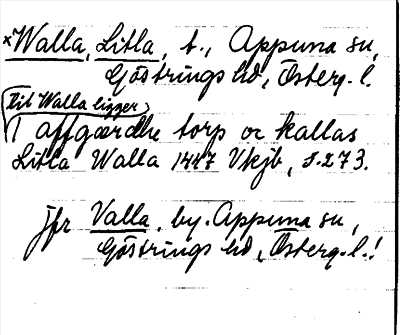 *Walla, Litla, t., Appuna sn,
Göstrings hd, Österg. l.
Til Walla ligger
1 affgærdhe torp oc kallas
Litla Walla 1447 Vkjb, s. 273.
jfr Valla, by, Appuna sn,
Göstrings hd, Österg. l.!